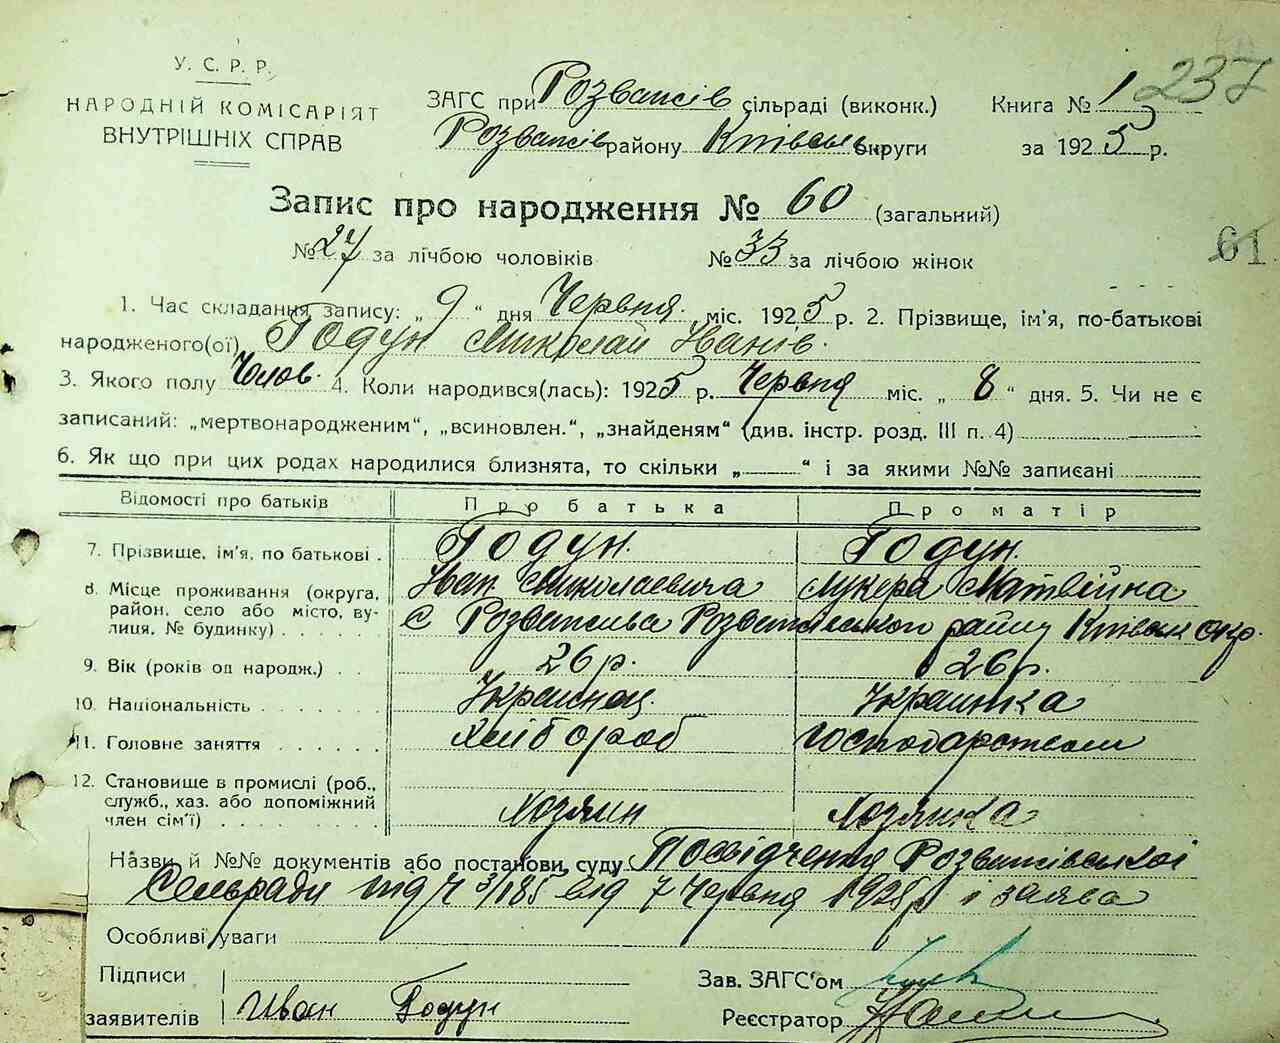 У. С. Р. Р.
НАРОДНІЙ КОМІСАРІЯТ
ВНУТРІШНІХ СПРАВ
ЗАГС при Розважів сільраді (виконк.) Книга № 1
237
Розважів району Київськ округи за 1925 р.
Запис про народження № 60 (загальний)
№ 27 за лічбою чоловіків № 33 за лічбою жінок
61
1. Час складання запису: „ 9 “ дня Червня міс. 1925 р. 2. Прізвище, ім'я, по-батькові
народженого(ої) Годун Миколай Іванів.
3. Якого полу Чолов. 4. Коли народився(лась): 1925 р. Червня міс. „ 8 “ дня. 5. Чи не є
записаний: „мертвонародженим“, „всиновлен.“, „знайденям“ (див. інстр. розд. III п. 4)
6. Як що при цих родах народилися близнята, то скільки „ — “ і за якими №№ записані
Відомості про батьків Про батька Про матір
7. Прізвище, ім'я, по батькові . Годун. Годун.
Іван Миколаевича Лукера Матвійна
8. Місце проживання (округа,
район, село або місто, ву-
лиця, № будинку) . . . . . с Розважівського району Київськ окр.
9. Вік (років од народж.) . . 26 р. 26 р.
10. Національність . . . . . . Украинец. Украинка
11. Головне заняття . . . . . . Хлібороб Господарством
12. Становище в промислі (роб.,
служб., хаз. або допоміжний
член сім'ї) . . . . . . . . . Хозяин Хозяйка
Назви й №№ документів або постанови суду Посвідчення Розважівської
Сельради від 7 Червня 1925 р і заява
Особливі уваги
Підписи Зав. ЗАГС'ом
заявителів Иван Годун Реєстратор